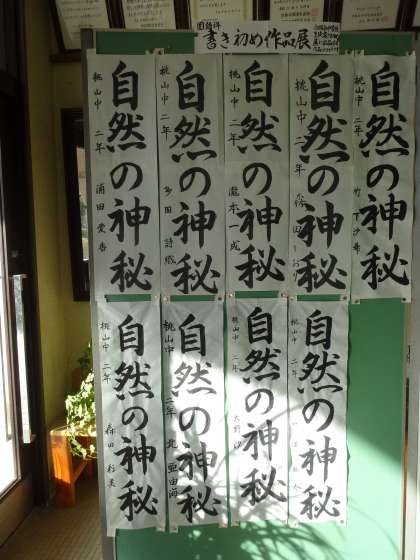 国語科
書き初め作品展
自然の神秘
桃山中 二年 竹下沙希
自然の神秘
桃山中 二年
自然の神秘
桃山中 二年 瀧本一成
自然の神秘
桃山中 二年 多田詩織
自然の神秘
桃山中 二年 蒲田愛香
自然の神秘
桃山中 二年
自然の神秘
桃山中 二年
自然の神秘
桃山中 二年 北 亜由海
自然の神秘
桃山中 二年 森田彩美